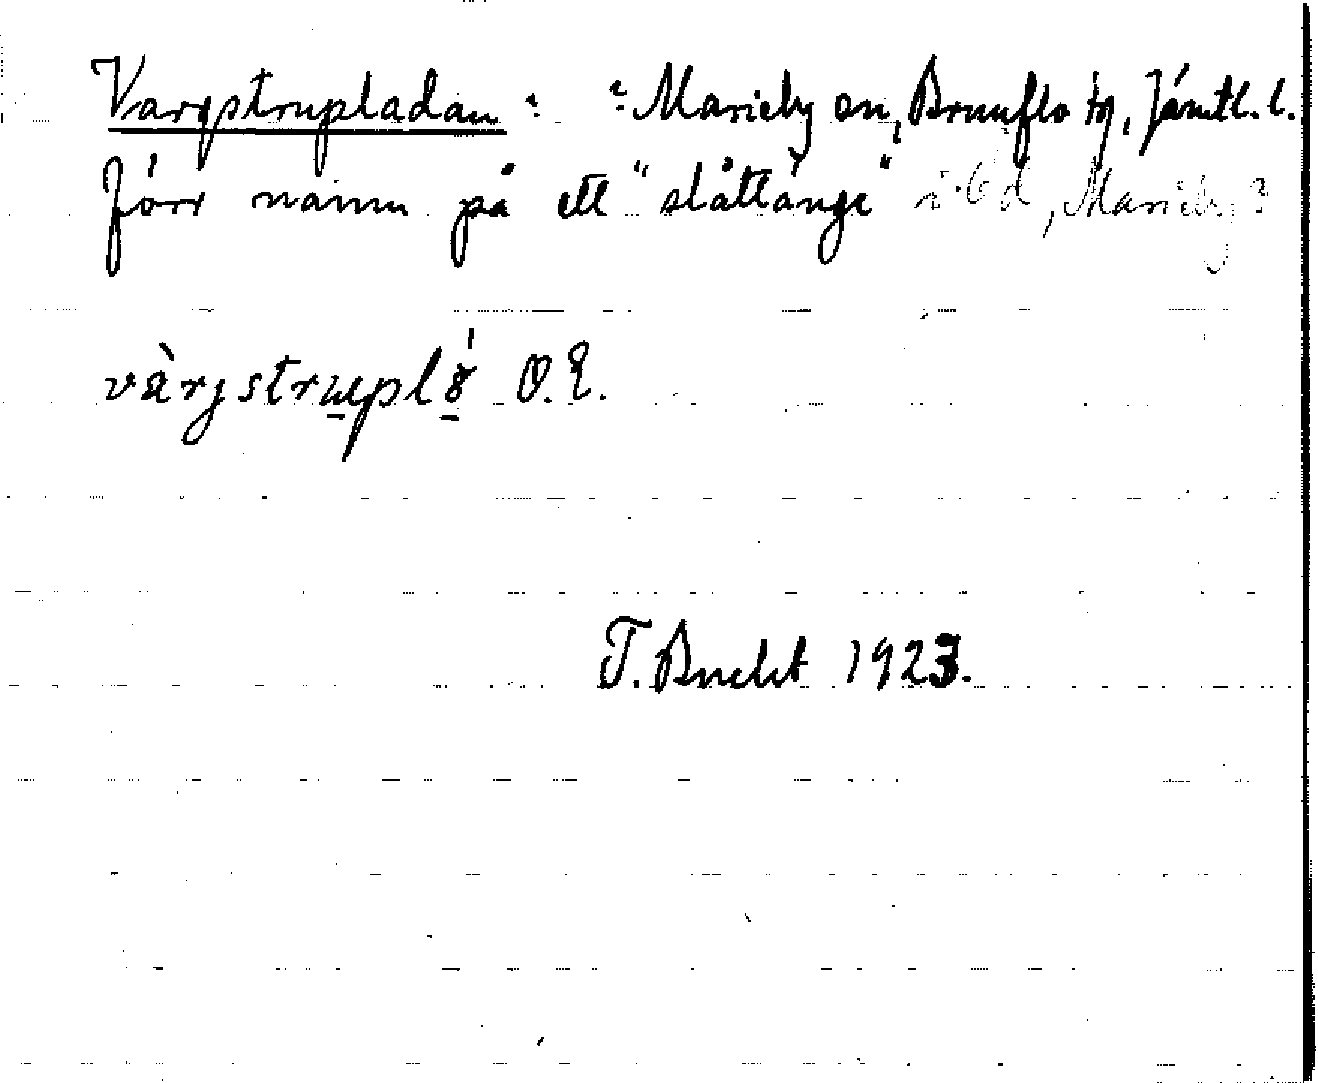 Vargstrupladan ? ? Marieby sn, Brunflo tg, Jämtl. l.
Förr namn på ett "slåttänge" i Marieby ?
vàrgstruplǻ O.E.
T. Bucht 1923.